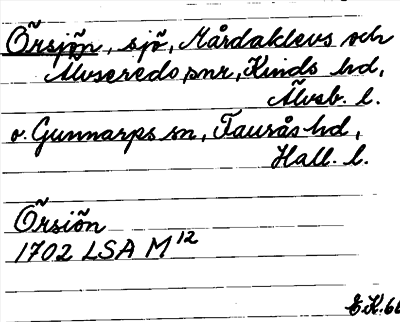 Örsjön, sjö, Mårdaklevs och
Älvsereds snr, Kinds hd,
Älvsb. l.
o. Gunnarps sn, Faurås hd,
Hall. l.
Örsiön
1702 LSA M 12
E.K. 66